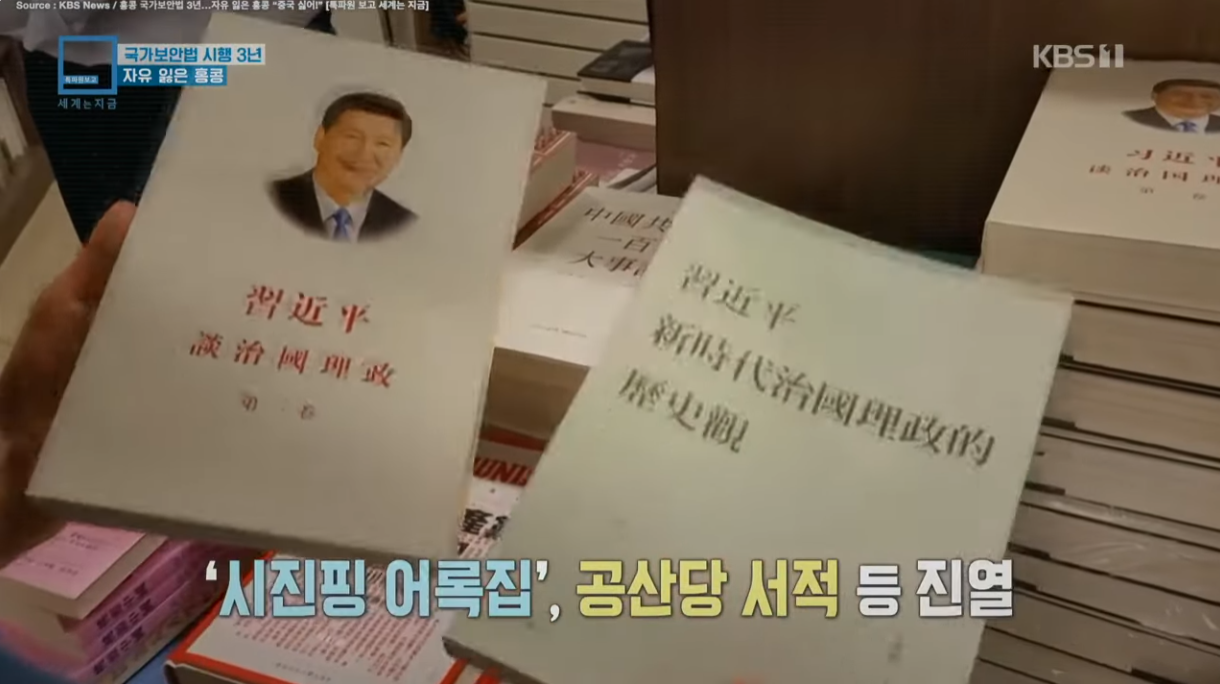 Source : KBS News / 홍콩 국가보안법 3년...자유 잃은 홍콩 “중국 싫어!” [특파원 보고 세계는 지금]
국가보안법 시행 3년
자유 잃은 홍콩
특파원보고
세계는지금
KBS1
習近平
談治國理政
第 卷
中國共
一百
大事
習近平
新時代治國理政的
歷史觀
习近平
谈治国理
第 卷
UNI
‘시진핑 어록집’, 공산당 서적 등 진열